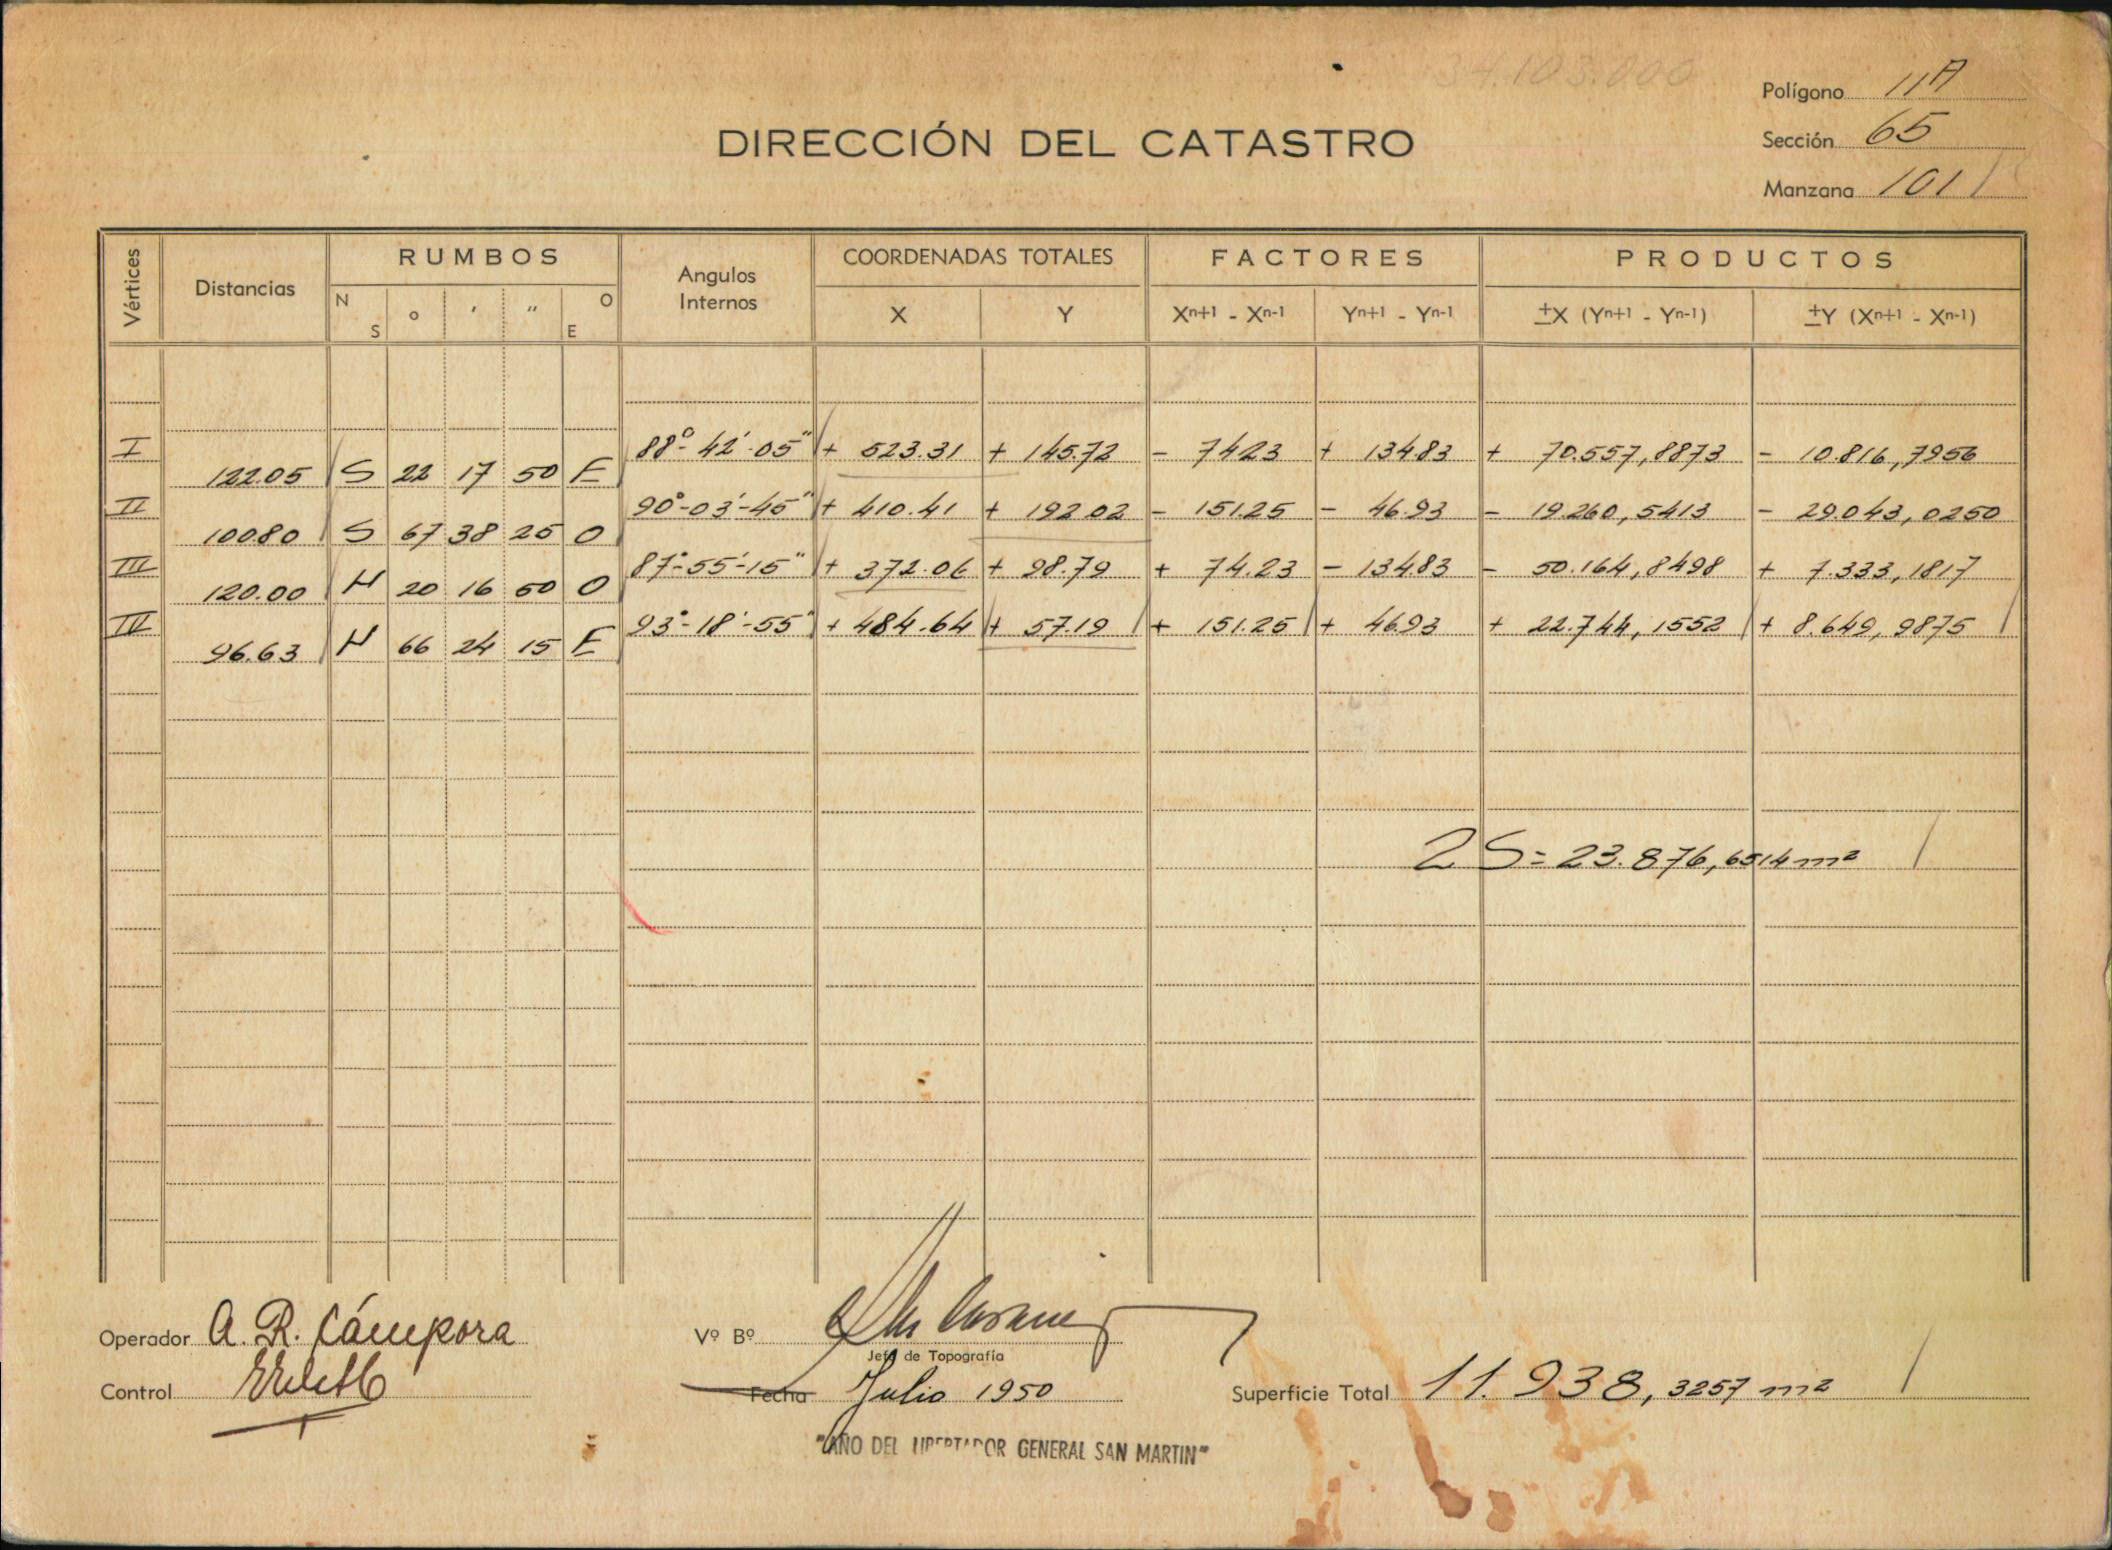 34.103.000
Polígono 11A
Sección 65
Manzana 101
DIRECCIÓN DEL CATASTRO
Vértices Distancias RUMBOS Angulos Internos COORDENADAS TOTALES FACTORES PRODUCTOS
N S ° ' " O E X Y Xn+1 - Xn-1 Yn+1 - Yn-1 ±X (Yn+1 - Yn-1) ±Y (Xn+1 - Xn-1)
I 88°-42'-05" + 523.31 + 145.72 - 74.23 + 134.83 + 70.557,8873 - 10.816,7956
122.05 S 22 17 50 E
II 90°-03'-45" + 410.41 + 192.02 - 151.25 - 46.93 - 19.260,5413 - 29.043,0250
100.80 S 67 38 25 O
III 87°-55'-15" + 372.06 + 98.79 + 74.23 - 134.83 - 50.164,8498 + 7.333,1817
120.00 N 20 16 50 O
IV 93°-18'-55" + 484.64 + 57.19 + 151.25 + 46.93 + 22.744,1552 + 8.649,9875
96.63 N 66 24 15 E
2 S = 23.876,6514 m²
Operador A. R. Cámpora
Vº Bº
Jefe de Topografía
Control
Fecha Julio 1950
Superficie Total 11.938,3257 m²
"AÑO DEL LIBERTADOR GENERAL SAN MARTIN"